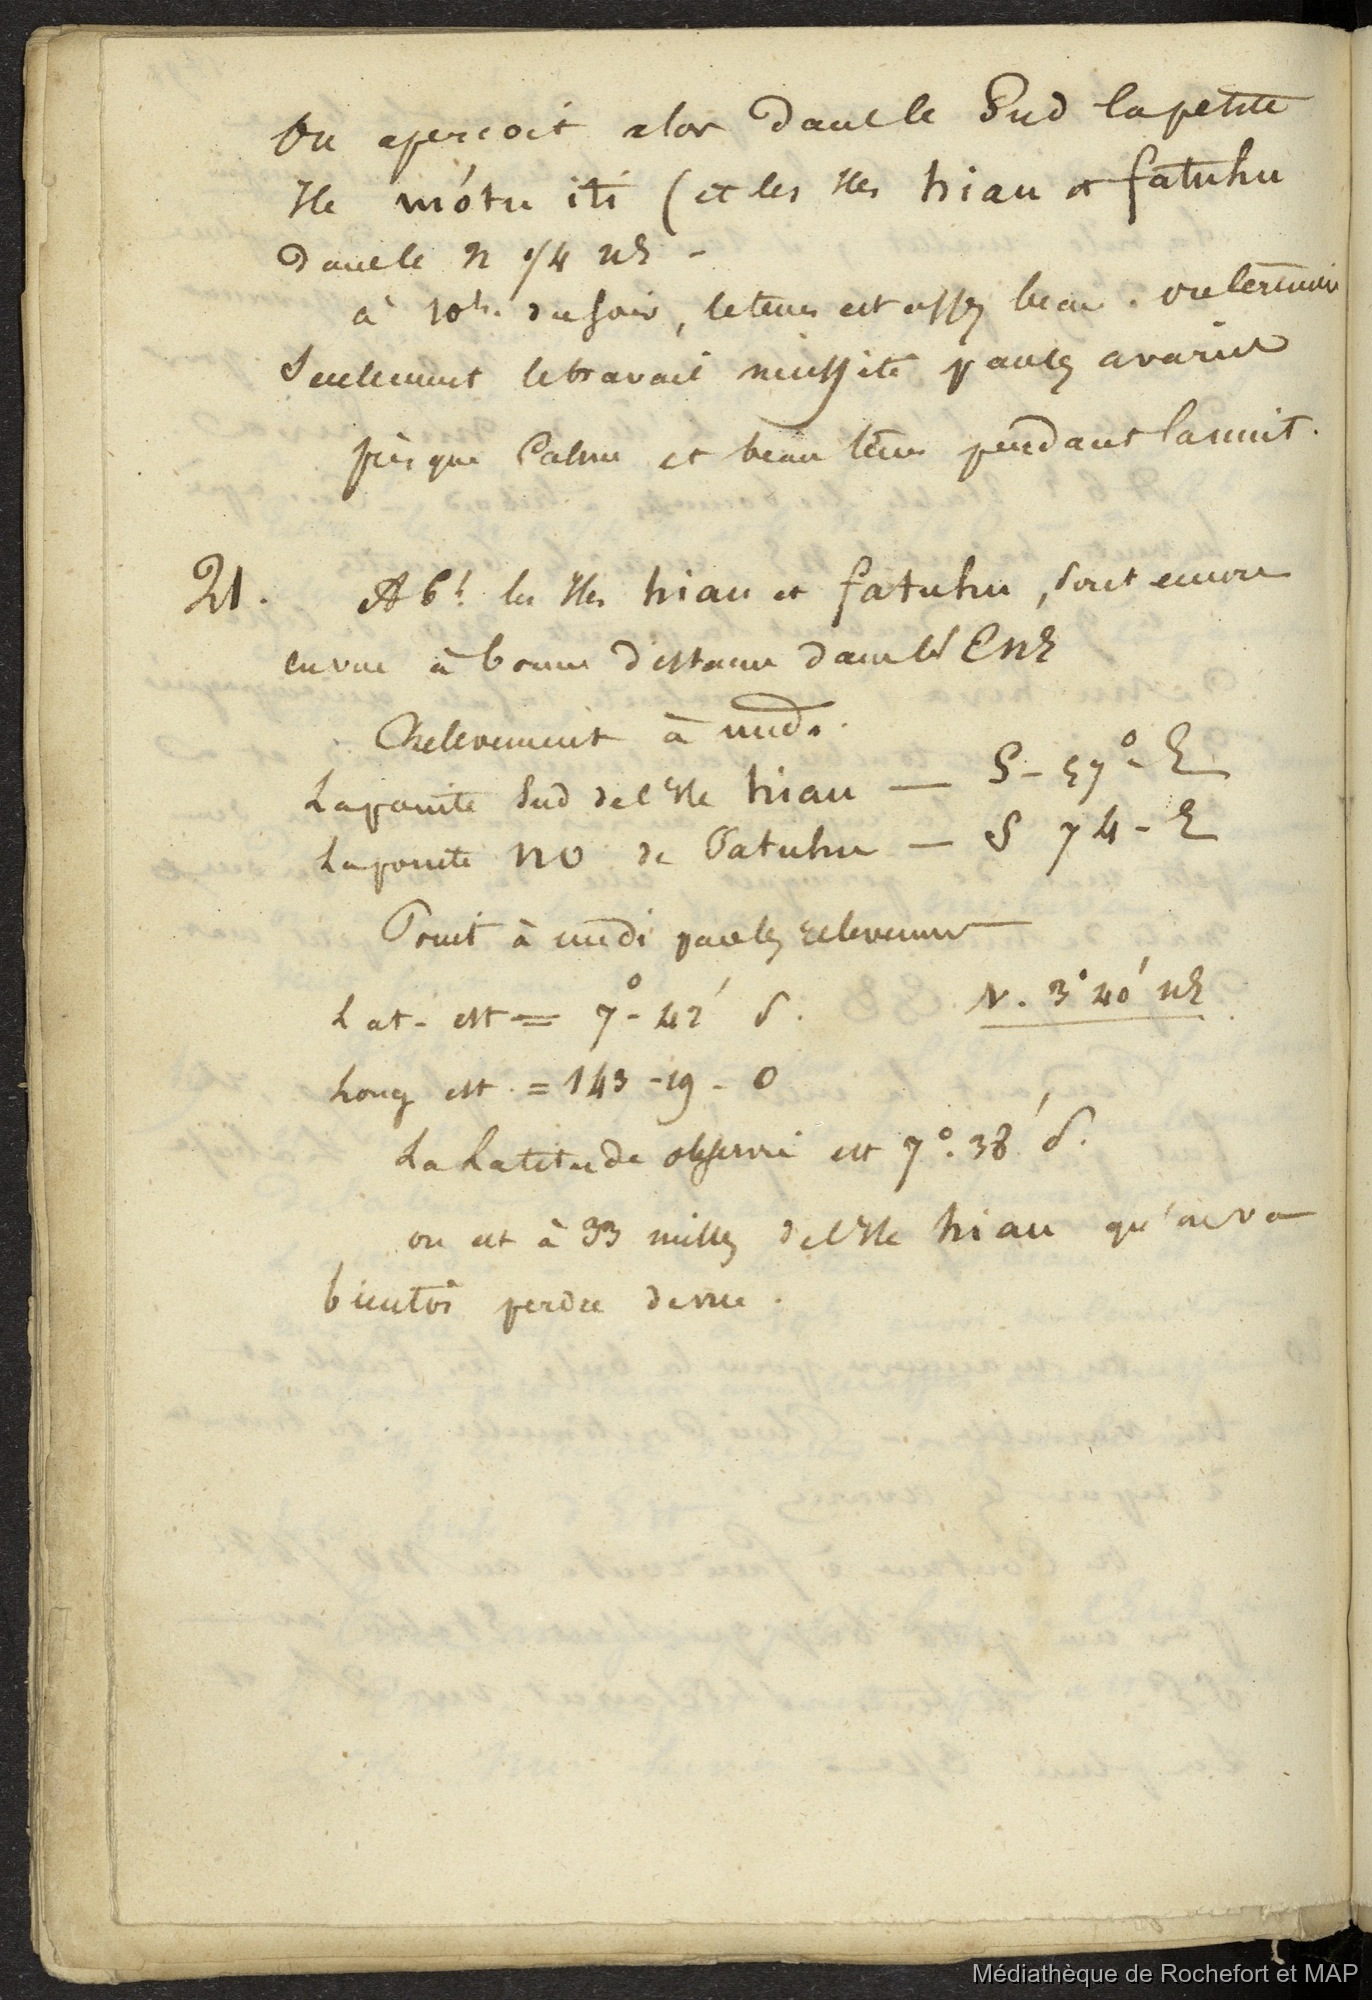 On apercoit alors dans le Sud la petite
Ile mótu iti (et les Iles hiau et fatuhu
dans le N 1/4 NE -
à 10h. du soir, le tems est assez beau. on termine
seulement le travail nécessité par les avaries
presque Calme et beau tems pendant la nuit.
21. A 6h. les Iles hiau et fatuhu, sont encore
en vue à bonne distance dans l'ENE
Relevement à midi.
La pointe Sud de l'Ile hiau — S - 57° - E
La pointe NO de Fatuhu — S 74 - E
Point à midi par les relevemens
Lat - est = 7° - 42' S. V. 3° 40' NE
Long est = 143 - 19 - O
La Latitude observée est 7°. 38' S.
on est à 33 milles de l'Ile hiau qu'on va
bientôt perdre de vue.
Médiathèque de Rochefort et MAP